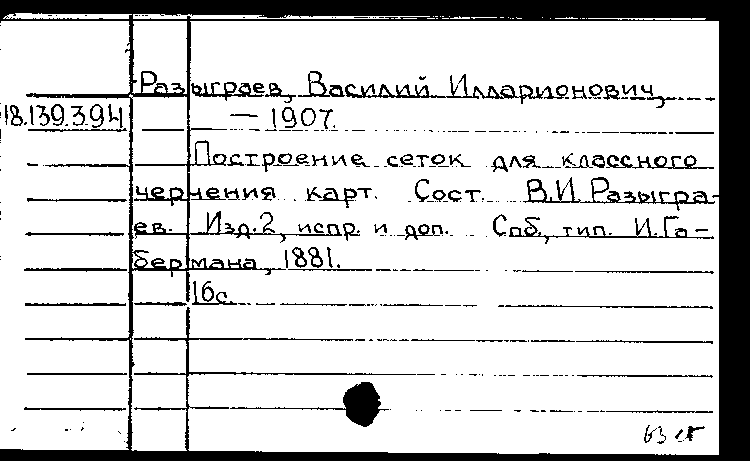 Разыграев, Василий Илларионович,
18.139.394
— 1907.
Построение сеток для классного
черчения карт. Сост. В.И. Разыгра-
ев. Изд.2, испр. и доп. Спб., тип. И.Га-
бермана, 1881.
16с.